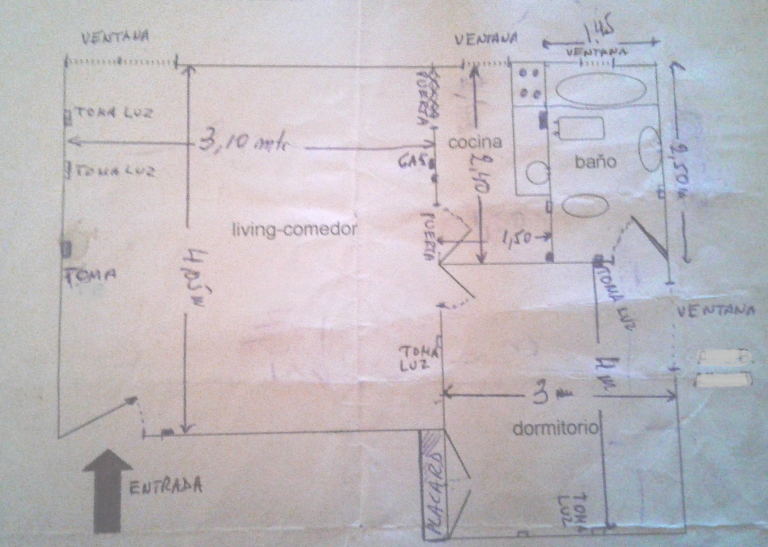 VENTANA
VENTANA
1,45
VENTANA
TOMA LUZ
PUERTA
3,10 mts
cocina
2,40
baño
2,50
GAS
TOMA LUZ
living-comedor
PUERTA
1,50
TOMA
TOMA LUZ
VENTANA
TOMA
LUZ
4 m
3
dormitorio
PLACARD
ENTRADA
TOMA
LUZ